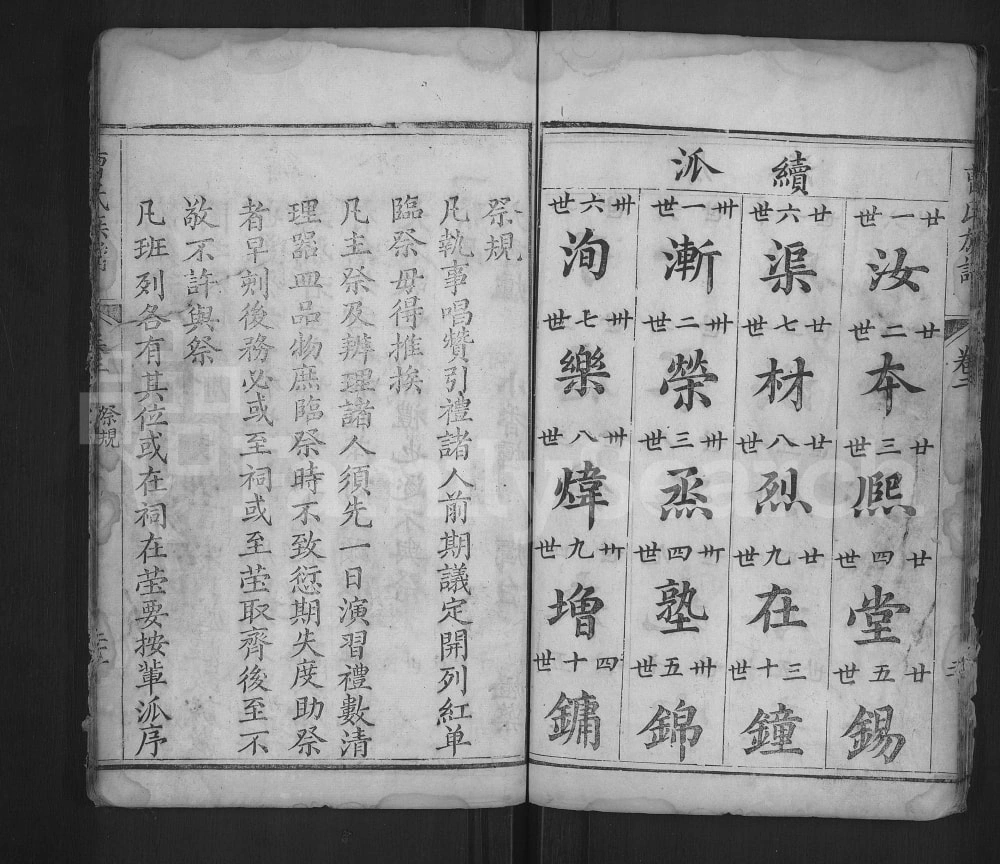 曹氏族譜
卷二
續派
廿一世
汝
廿二世
本
廿三世
熙
廿四世
堂
廿五世
錫
廿六世
渠
廿七世
材
廿八世
烈
廿九世
在
三十世
鐘
卅一世
漸
卅二世
榮
卅三世
烝
卅四世
塾
卅五世
錦
卅六世
洵
卅七世
樂
卅八世
煒
卅九世
增
四十世
鏞
祭規
凡執事唱贊引禮諸人前期議定開列紅单
臨祭毋得推挨
凡主祭及辦理諸人須先一日演習禮數清
理器皿品物庶臨祭時不致愆期失度助祭
者早刻後務必或至祠或至塋取齊後至不
敬不許與祭
凡班列各有其位或在祠在塋要按輩派序
曹氏族譜
祭規